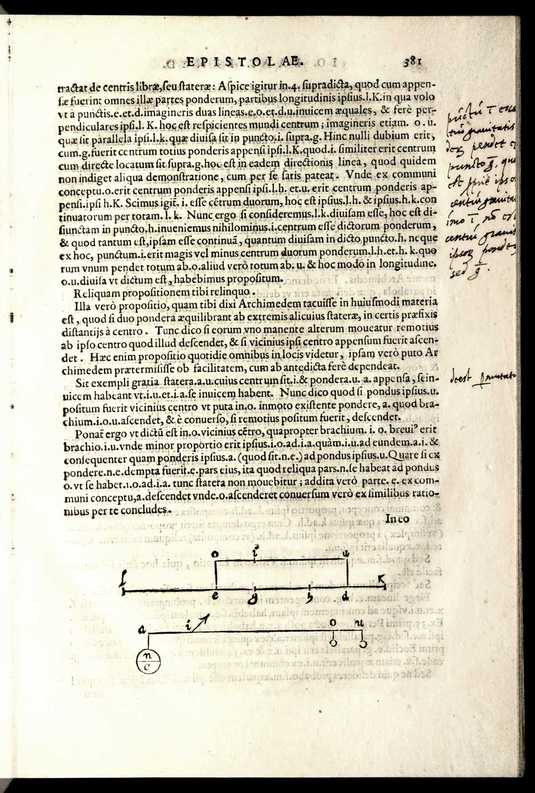 EPISTOLAE. 381
tractat de centris libræ, seu stateræ: Aspice igitur in .4. supradicta, quod cum appen-
sæ fuerint omnes illæ partes ponderum, partibus longitudinis ipsius .l.K. in qua volo
vt à punctis .e. et .d. imagineris duas lineas .e.o. et .d.u. inuicem æquales, & ferè per-
pendiculares ipsi .l.K. hoc est respicientes mundi centrum; imagineris etiam .o.u.
quæ sit parallela ipsi .l.k. quæ diuisa sit in puncto .i. supra .g. Hinc nulli dubium erit,
cum .g. fuerit centrum totius ponderis appensi ipsi .l.K. quod .i. similiter erit centrum
cum directe locatum sit supra .g. hoc est in eadem directionis linea, quod quidem
non indiget aliqua demonstratione, cum per se satis pateat. Vnde ex communi
conceptu .o. erit centrum ponderis appensi ipsi .l.h. et .u. erit centrum ponderis ap-
pensi .ipsi h.K. Scimus igit̃. i. esse cẽtrum duorum, hoc est ipsius .l.h. & ipsius .h.k. con
tinuatorum per totam .l.k. Nunc ergo si consideremus .l.k. diuisam esse, hoc est di-
siunctam in puncto .h. inueniemus nihilominus .i. centrum esse dictorum ponderum,
& quod tantum est, ipsam esse continuã, quantum diuisam in dicto pũcto .h. neque
ex hoc, punctum .i. erit magis vel minus centrum duorum ponderum .l.h. et .h.k. quo
rum vnum pendet totum ab .o. aliud verò totum ab .u. & hoc modo in longitudine.
o.u. diuisa vt dictum est, habebimus propositum.
Reliquam propositionem tibi relinquo.
Illa verò propositio, quam tibi dixi Archimedem tacuisse in huiusmodi materia
est, quod si duo pondera æquilibrant ab extremis alicuius stateræ, in certis præfixis
distantijs à centro. Tunc dico si eorum vno manente alterum moueatur remotius
ab ipso centro quod illud descendet, & si vicinius ipsi centro appensum fuerit ascen-
det. Hæc enim propositio quotidie omnibus in locis videtur, ipsam verò puto Ar
chimedem prætermisisse ob facilitatem, cum ab antedicta ferè dependeat.
Sit exempli gratia statera .a.u. cuius centrum sit .i. & pondera .u. a. appensa, se in-
uicem habeant vt .i.u. et .i.a. se inuicem habent. Nunc dico quod si pondus ipsius .u.
positum fuerit vicinius centro vt puta in .o. inmoto existente pondere, .a. quod bra-
chium .i.o.u. ascendet, & è conuerso, si remotius positum fuerit, descendet.
Ponat̃ ergo vt dictũ est in .o. vicinius cẽtro, quapropter brachium. i.o. breui⁹ erit
brachio .i.u. vnde minor proportio erit ipsius .i.o. ad .i.a. quàm .i.u. ad eundem .a.i. &
cõsequenter quam ponderis ipsius .a. (quod sit .n.e.) ad pondus ipsius .u. Quare si ex
pondere .n.e. dempta fuerit .e. pars eius, ita quod reliqua pars .n. se habeat ad pondus
o. vt se habet .i.o. ad .i.a. tunc statera non mouebitur; addita verò parte. e. ex com-
muni conceptu, a. descendet vnde .o. ascenderet conuersum verò ex similibus ratio-
nibus per te concludes.
In eo
o i u
l e g h d K
a i o u
n
e